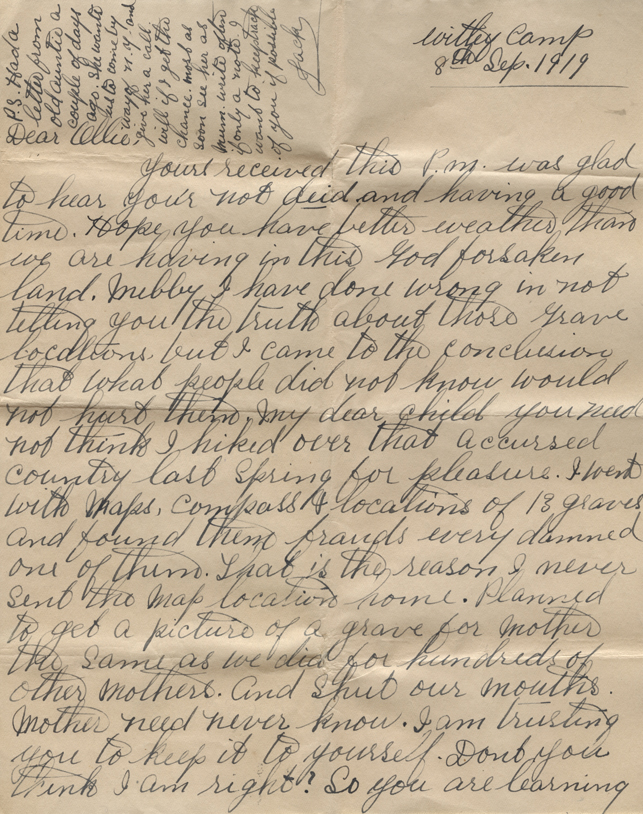 Witley Camp
8th Sep. 1919
P.S. Had a
letter from
old auntie a
couple of days
ago. She wants
us to come by
way of N.Y. and
give her a call
will if I get the
chance. most as
soon see her as
mum. write often
if only a note. I
want to keep track
of you if possible
Jack
Dear Ollie.
Yours received this P.M. was glad
to hear your not deid and having a good
time. Hope you have better weather than
we are having in this God forsaken
land. Mebby I have done wrong in not
telling you the truth about those grave
locations but I came to the conclusion
that what people did not know would
not hurt them. My dear child you need
not think I hiked over that accursed
country last Spring for pleasure. I went
with Maps, Compass & locations of 13 graves
and found them frauds every damned
one of them. That is the reason I never
sent the Map location home. Planned
to get a picture of a grave for Mother
the same as we did for hundreds of
other Mothers. And Shut our mouths.
Mother need never know. I am trusting
you to keep it to yourself. Dont you
think I am right? So you are learning